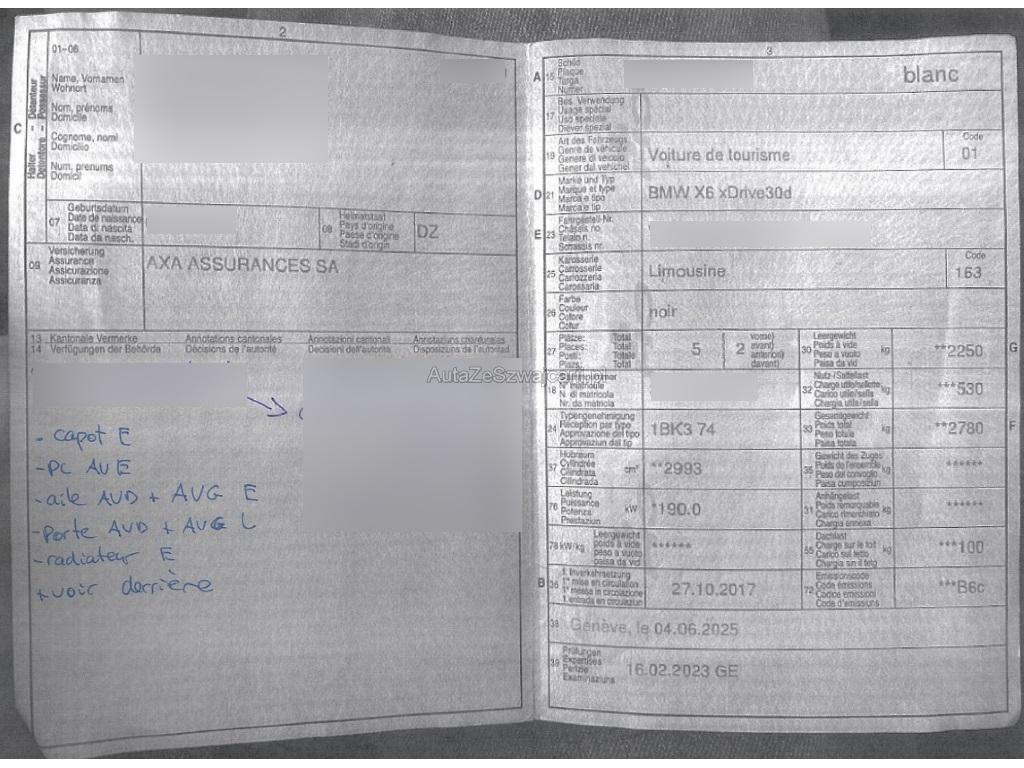 2
01-06
Name, Vornamen
Wohnort
Nom, prénoms
Domicile
Cognome, nomi
Domicilio
Num, prenums
Domicil
C
Halter - Détenteur
Detentore - Possessur
07
Geburtsdatum
Date de naissance
Data di nascita
Data da nasch.
08
Heimatstaat
Pays d'origine
Paese d'origine
Stadi d'origin
DZ
09
Versicherung
Assurance
Assicurazione
Assicuranza
AXA ASSURANCES SA
13 Kantonale Vermerke Annotations cantonales Annotazioni cantonali Annotaziuns chantunalas
14 Verfügungen der Behörde Décisions de l'autorité Decisioni dell'autorità Disposiziuns da l'autoritad
- capot E
- PC AV E
- aile AVD + AVG E
- Porte AVD + AVG L
- radiateur E
+ voir derrière
3
A 15
Schild
Plaque
Targa
Numer
blanc
17
Bes. Verwendung
Usage spécial
Uso speciale
Diever spezial
19
Art des Fahrzeugs
Genre de véhicule
Genere di veicolo
Gener dal vehichel
Voiture de tourisme
Code
01
D 21
Marke und Typ
Marque et type
Marca e tipo
Marca e tip
BMW X6 xDrive30d
E 23
Fahrgestell-Nr.
Châssis no
Telaio n.
Schassis nr.
25
Karosserie
Carrosserie
Carrozzeria
Carossaria
Limousine
Code
163
26
Farbe
Couleur
Colore
Colur
noir
27
Plätze: Total
Places: Total
Posti: Totale
Plazs: Total
5
2
vorne)
avant)
anteriori)
davant)
30
Leergewicht
Poids à vide
Peso a vuoto
Paisa da vid
kg
**2250
G
18
Stammnummer
N° matricule
N. di matricola
Nr. da matricla
32
Nutz-/Sattellast
Charge utile/sellette
Carico utile/sella
Chargia utila/sella
kg
***530
24
Typengenehmigung
Réception par type
Approvazione del tipo
Approvaziun dal tip
1BK3 74
33
Gesamtgewicht
Poids total
Peso totale
Paisa totala
kg
**2780
F
37
Hubraum
Cylindrée
Cilindrata
Cilindrada
cm³
**2993
35
Gewicht des Zuges
Poids de l'ensemble
Peso del convoglio
Paisa cumposiziun
kg
******
76
Leistung
Puissance
Potenza
Prestaziun
kW
*190.0
31
Anhängelast
Poids remorquable
Carico rimorchiato
Chargia annexa
kg
******
78 kW/kg
Leergewicht
poids à vide
peso a vuoto
paisa da vid
******
55
Dachlast
Charge sur le toit
Carico sul tetto
Chargia sin il tetg
kg
***100
B 36
1. Inverkehrsetzung
1re mise en circulation
1a messa in circolazione
1. entrada en circulaziun
27.10.2017
72
Emissionscode
Code émissions
Codice emissioni
Code d'emissiuns
***B6c
38
Genève, le 04.06.2025
39
Prüfungen
Expertises
Perizie
Examinaziuns
16.02.2023 GE